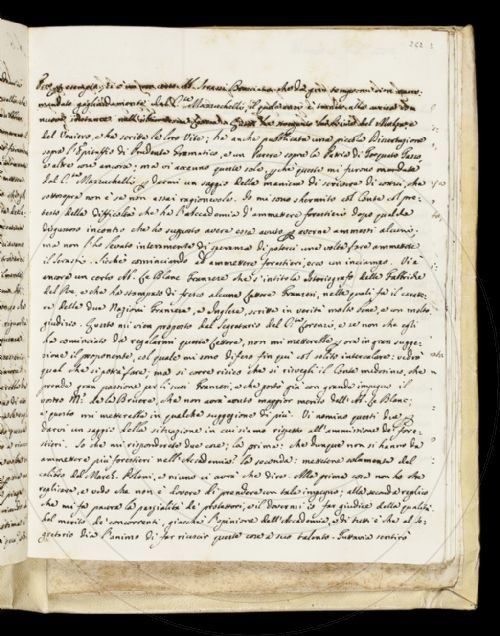 262
Per esempio, vi è un certo Ab. Serassi Bergamasco, che da gran tempo mi vien racco-
mandato gagliardamente dal C.te Mazzucchelli, il
nuove istanze
del Uniero, e ha scritto le loro Vite; ha anche pubblicata una piccola Dissertazione
sopra l'Epitaffio di Prudenta Grammatico, e un Parere sopra la Patria di Torquato Tasso,
e altre cose ancora; ma vi accenno queste sole, perche queste mi furono mandate
dal C.te Mazzuchelli per darmi un saggio della maniera di scrivere di costui, che
sottosopra non è se non assai ragionevole. Io mi sono schermito col Conte sul pre-
testo della difficoltà che ha l'Accademia d'ammettere forestieri dopo qualche
disgustoso incontro che ho supposto avere essa avuto per averne ammessi alcuni;
ma non l'ho levato interamente di speranza di potervi una volta fare ammettere
il Serassi. Sicché cominciando ad ammettere forestieri, ecco un inciampo. Vi è
ancora un certo Ab. Le Blanc Franzese che s'intitola Istoriografo delle Fabbriche
del Re, e che ha stampato di fresco alcune Lettere Franzesi, nelle quali fa il caratte-
re delle due Nazioni Franzese, e Inglese, scritte in verità molto bene, e con molto
giudizio. Questo mi vien proposto dal Segretario del C.te Lorenzi, e se non che egli
ha cominciato da regalarmi queste Lettere, non mi metterebbe per ora in gran sugge-
zione il proponente, col quale mi sono difeso fin qui col solito intercalare: vedrò
quel che si potrà fare; ma si corre risico che si risvegli il Conte medesimo, che
prende gran passione per li suoi Franzesi, e che portò già con grande impegno il
vostro M.r de la Bruere, che non avrà avuto maggior merito dell'Ab. Le Blanc;
e questo mi metterebbe in qualche suggezione di più. Vi nomino questi due per
darvi un saggio della situazione in cui siamo rispetto all'ammissione de' fore-
stieri. So che mi risponderete due cose; la prima: che dunque non si hanno da
ammettere più forestieri nell'Accademia? la seconda: mettere solamente del
calibro del March. Poleni, e niuno vi avrà che dire. Alla prima cosa non ho che
replicare, e vedo che non è dovere di prendere un tale impegno; alla seconda replico
che mi fa paura la parzialità de' protettori, e il dovermi io far giudice della qualità
del merito de' concorrenti, giacche l'opinione dell'Accademia, e di tutti è che al Se-
gretario dia l'animo di far riuscir queste cose a suo talento. Tuttavia sentirò